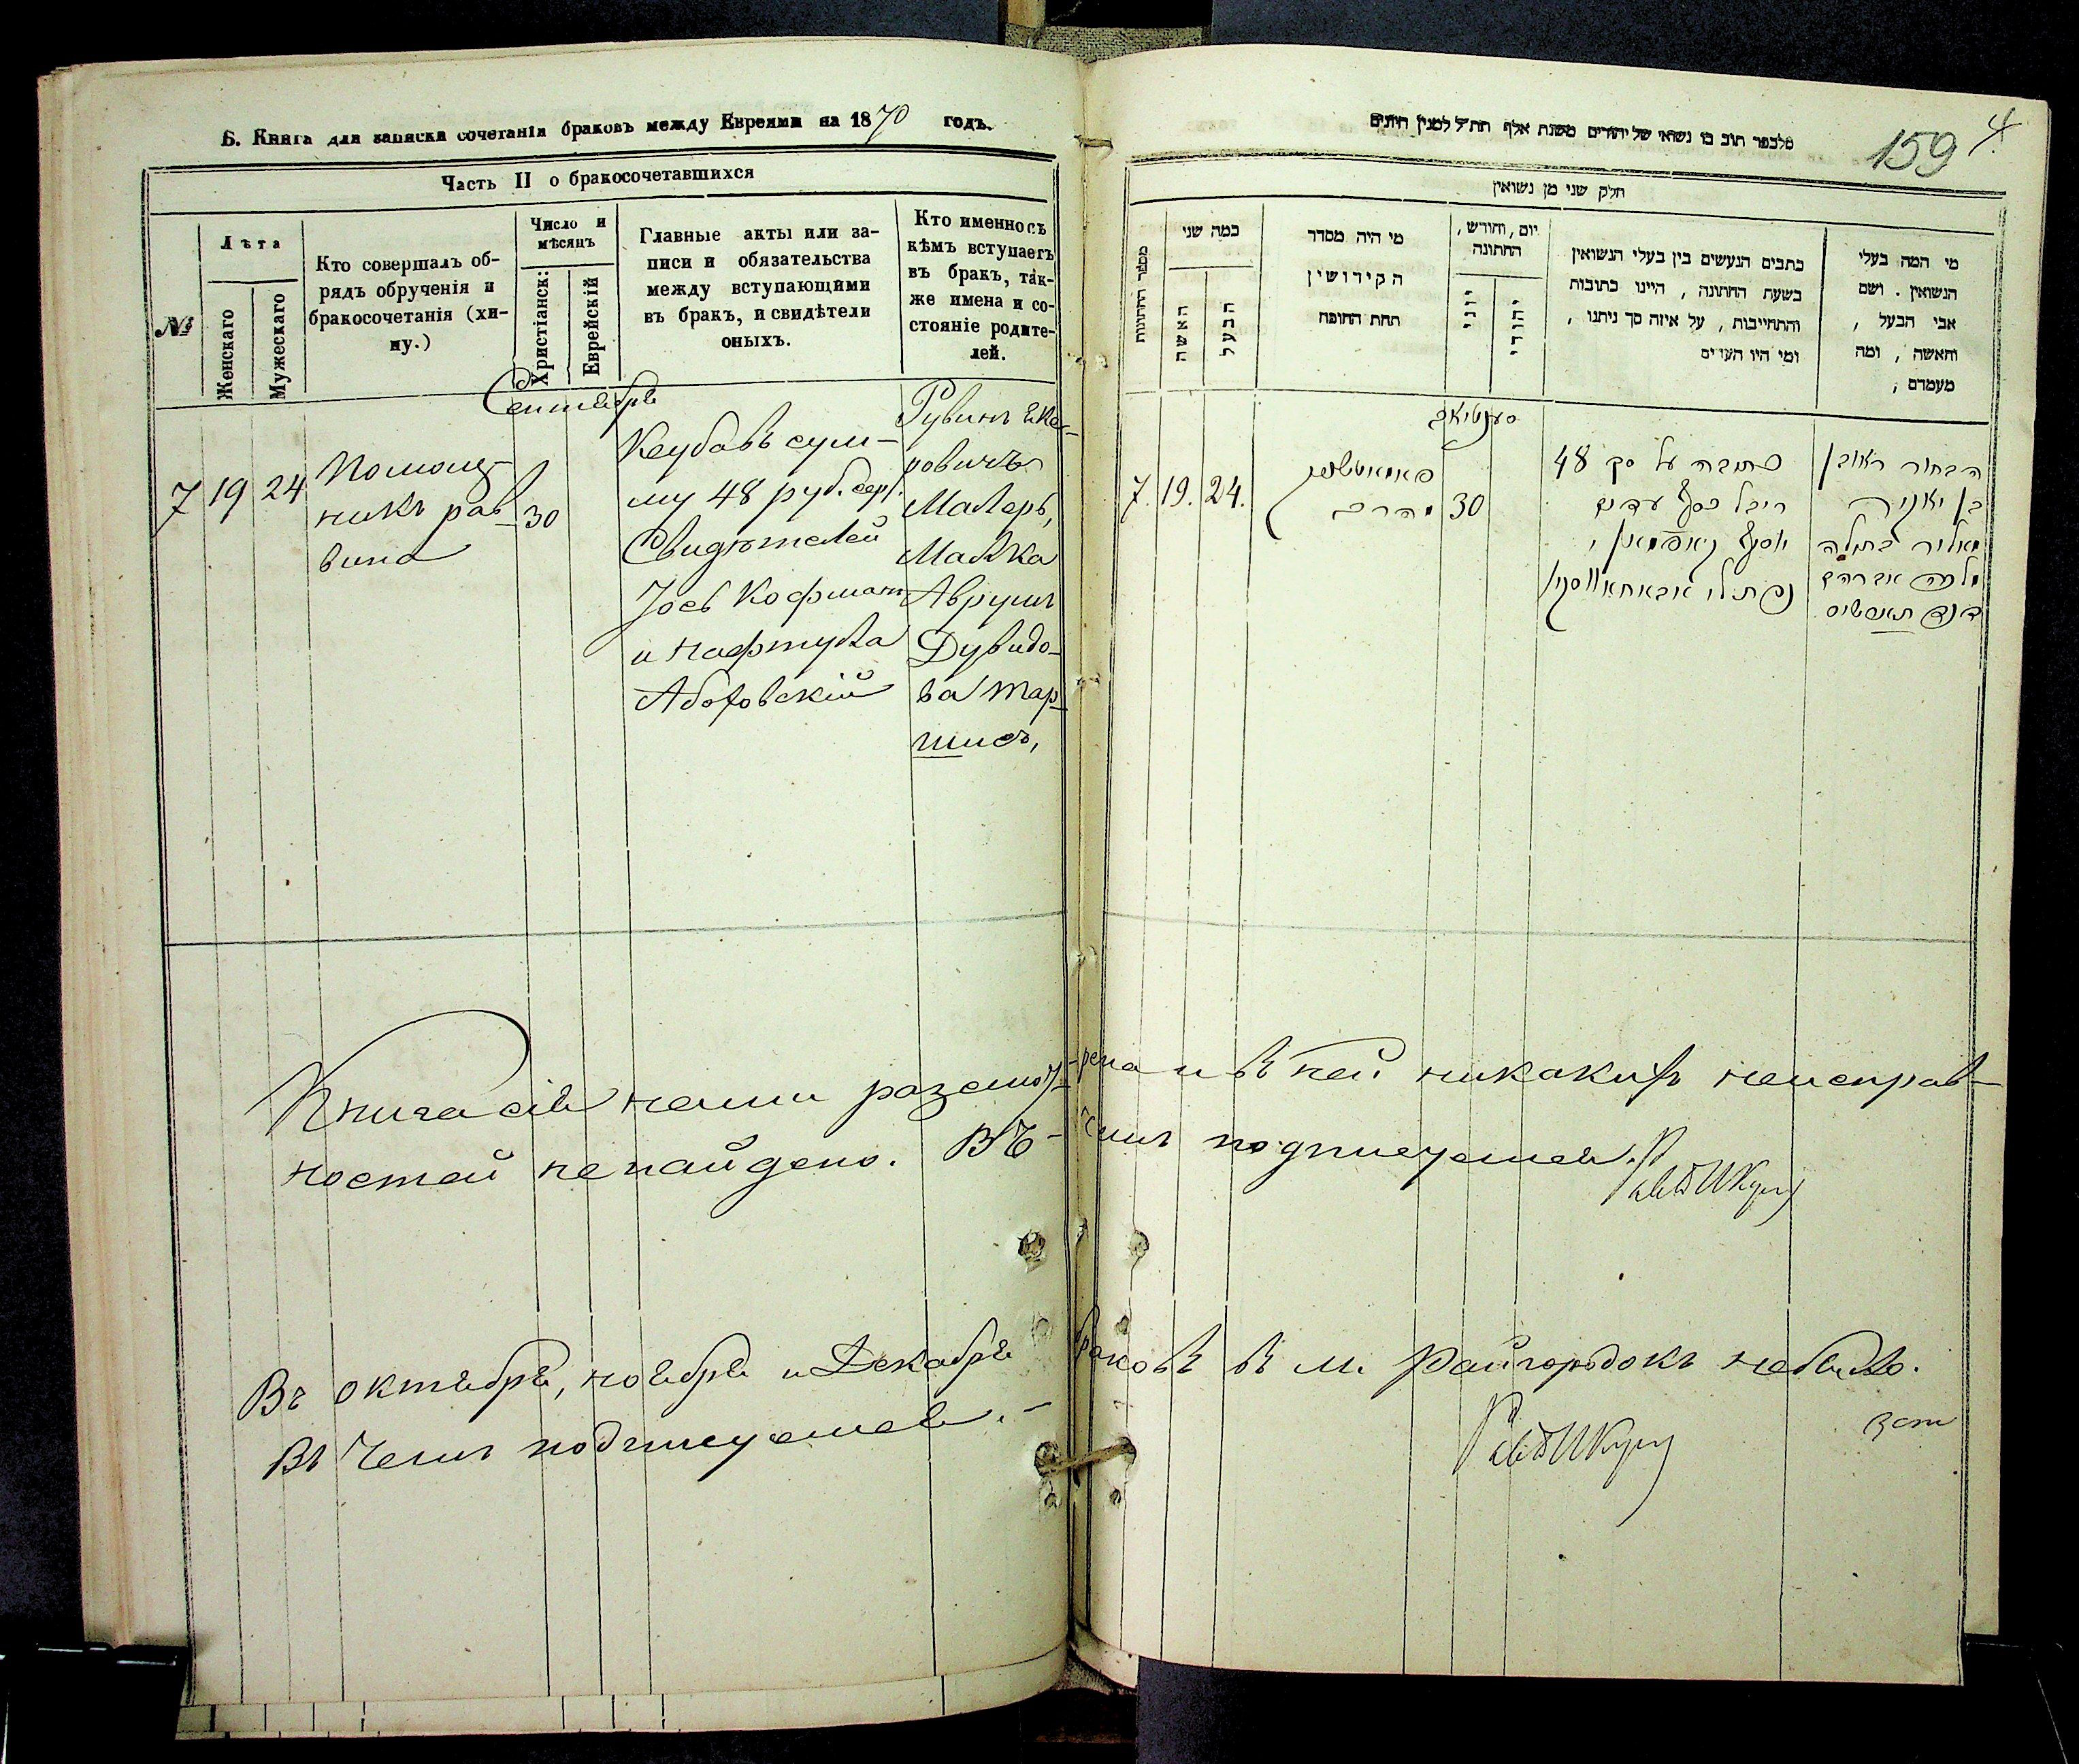 Б. Книга для записки сочетанія браковъ между Евреями на 1870 годъ.
Часть II о бракосочетавшихся
№
Лѣта
Женскаго
Мужескаго
Кто совершалъ об-
рядъ обрученія и
бракосочетанія (хи-
пу.)
Число и
мѣсяцъ
Христіанск:
Еврейскій
Главные акты или за-
писи и обязательства
между вступающими
въ бракъ, и свидѣтели
оныхъ.
Кто именно съ
кѣмъ вступаетъ
въ бракъ, так-
же имена и со-
стояніе родите-
лей.
Сентября
7 19 24
Помощ-
никъ рав
вина
30
Кеубавъ сум-
му 48 руб. сер.
Свидѣтелей
Іось Кофманъ
и Нафтула
Абоховскій
Рувинъ
ровичъ
Маляръ,
Малка
Аврумъ
Дувидо-
ва Тар-
шисъ,
Книга сія нами разсмот-
рена и въ ней никакихъ неисправ-
ностей не найдено. В Ч-
емъ подписуемся.
Въ октябрѣ, ноябрѣ и Декабрѣ
браковъ въ м. Райгородокъ небыло.
Въ чемъ подписуемся.-
159
4
מלכפר תוב בו נשואי של יהודים משנת אלף תת״ל למנין היונים
חלק שני מן נשואין
מספר החתונות
כמה שני
האשה
הבעל
מי היה מסדר
הקידושין
תחת החופה
יום, וחודש,
החתונה
יוני
יהודי
כתבים הנעשים בין בעלי הנשואין
בשעת החתונה, היינו כתובות
והתחייבות, על איזה סך ניתנו,
ומי היו העדים
מי המה בעלי
הנשואין. ושם
אבי הבעל,
והאשה, ומה
מעמדם,
7. 19. 24.
30
כתובה על סך 48
ריבל כסף עדים
יוסף קאפמאן,
נפתלי
הבחור ראובן
בן
מאליר בתולה
מלכה אברהם